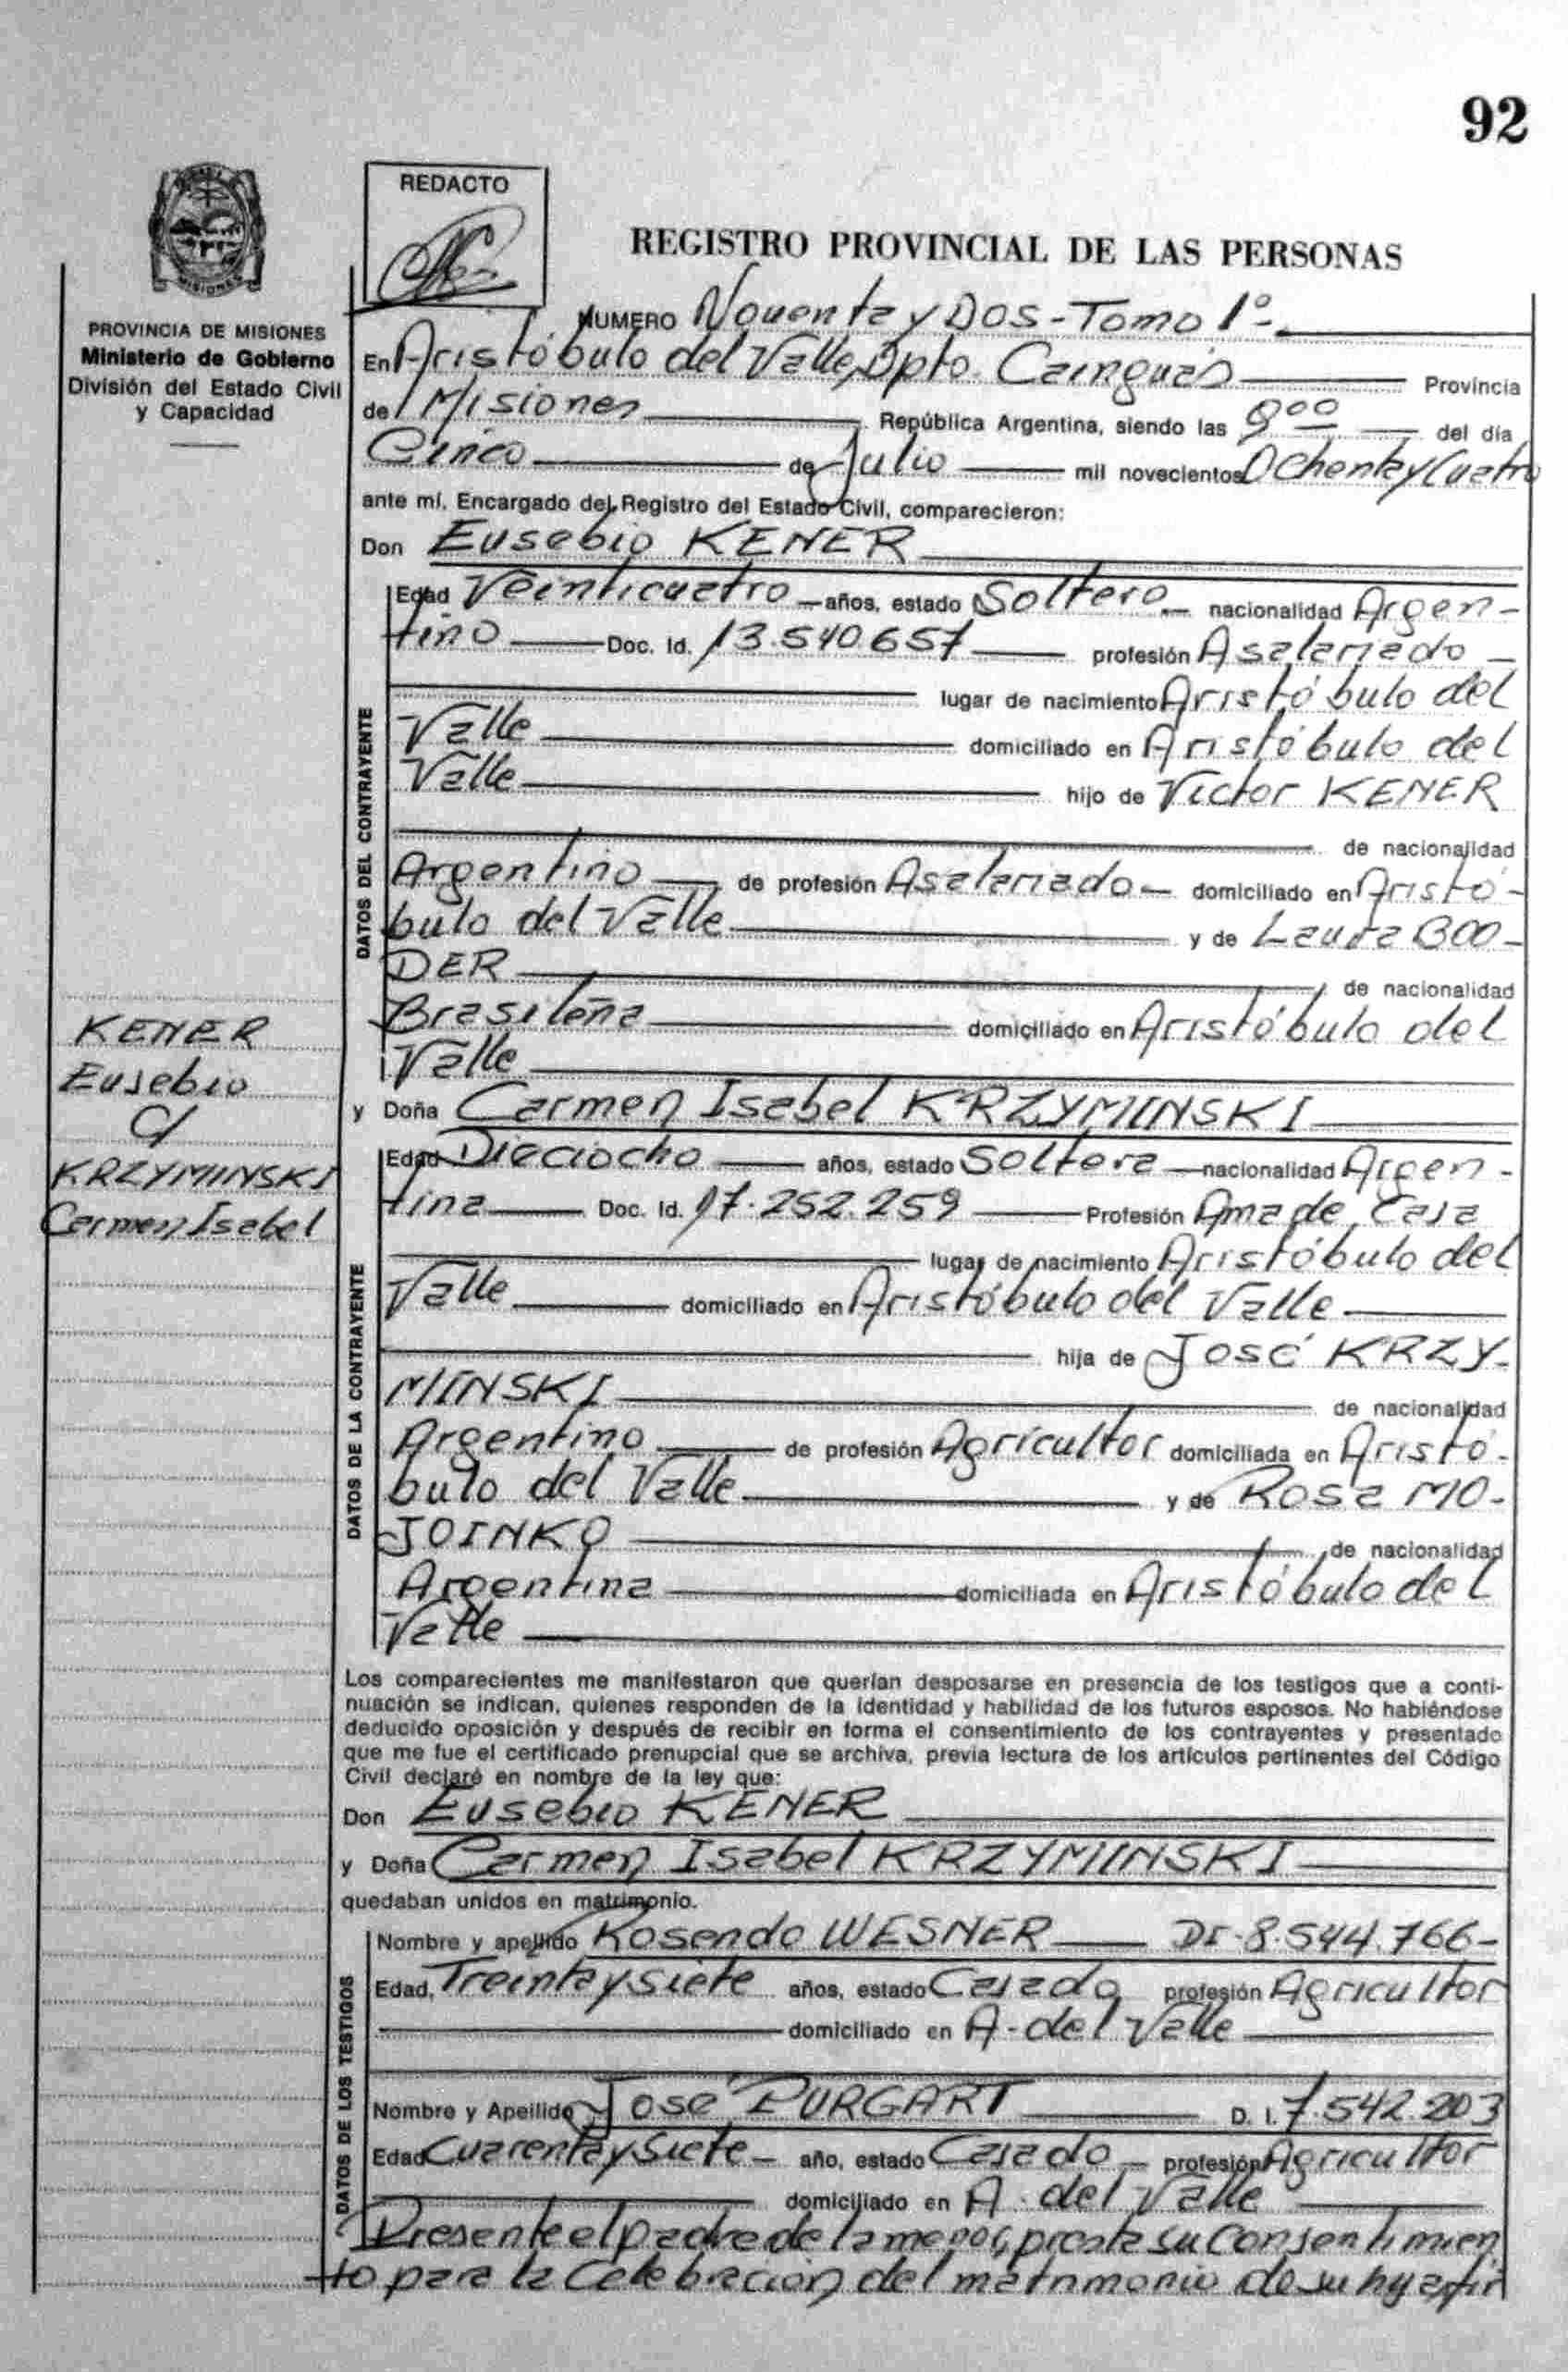 92
REDACTO
REGISTRO PROVINCIAL DE LAS PERSONAS
MISIONES
PROVINCIA DE MISIONES
Ministerio de Gobierno
División del Estado Civil
y Capacidad
NUMERO Noventa y Dos - Tomo 1º -
En Aristóbulo del Valle, Dpto. Cainguás Provincia
de Misiones República Argentina, siendo las 9ºº del día
Cinco de Julio mil novecientos Ochentay Cuatro
ante mí, Encargado del Registro del Estado Civil, comparecieron:
Don Eusebio KENER
DATOS DEL CONTRAYENTE
Edad Veinticuatro años, estado Soltero nacionalidad Argen-
tino Doc. Id. 13.540.657 profesión Asalariado
lugar de nacimiento Aristóbulo del
Valle domiciliado en Aristóbulo del
Valle hijo de Victor KENER
de nacionalidad
Argentino de profesión Asalariado domiciliado en Aristó-
bulo del Valle y de Laura BOO-
DER de nacionalidad
Brasileña domiciliado en Aristóbulo del
Valle
KENER
Eusebio
C/
KRZYMINSKI
Carmen Isabel
y Doña Carmen Isabel KRZYMINSKI
DATOS DE LA CONTRAYENTE
Edad Dieciocho años, estado Soltera nacionalidad Argen-
tina Doc. Id. 17.252.259 Profesión Ama de Casa
lugar de nacimiento Aristóbulo del
Valle domiciliado en Aristóbulo del Valle
hija de José KRZY-
MINSKI de nacionalidad
Argentino de profesión Agricultor domiciliada en Aristó-
bulo del Valle y de Rosa MO-
JOINKO de nacionalidad
Argentina domiciliada en Aristóbulo del
Valle
Los comparecientes me manifestaron que querían desposarse en presencia de los testigos que a conti-
nuación se indican, quienes responden de la identidad y habilidad de los futuros esposos. No habiéndose
deducido oposición y después de recibir en forma el consentimiento de los contrayentes y presentado
que me fue el certificado prenupcial que se archiva, previa lectura de los artículos pertinentes del Código
Civil declaré en nombre de la ley que:
Don Eusebio KENER
y Doña Carmen Isabel KRZYMINSKI
quedaban unidos en matrimonio.
DATOS DE LOS TESTIGOS
Nombre y apellido Rosendo WESNER DI-8.544.766-
Edad, Treintaysiete años, estado Casado profesión Agricultor
domiciliado en A. del Valle
Nombre y Apellido José PURGART D. I. 7.542.203
Edad Cuarentay Siete - año, estado Casado - profesión Agricultor
domiciliado en A. del Valle
Presente el padre de la menor, presta su consentimien
to para la Celebración del matrimonio de su hija